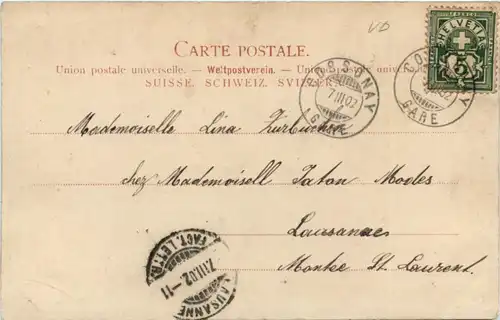 VD
HELVETIA
5
CARTE POSTALE.
Union postale universelle. — Weltpostverein. — Union postale univers
SUISSE. SCHWEIZ. SVIZZERA
COSSONAY
7.III.02
GARE
CO NAY
02
GARE
Mademoiselle Lina Zurbuchen
chez Mademoisell Taton Modes
Lausanne
Montée St. Laurent.
FACT. LETTR
7.III.02.-11
LAUSANNE